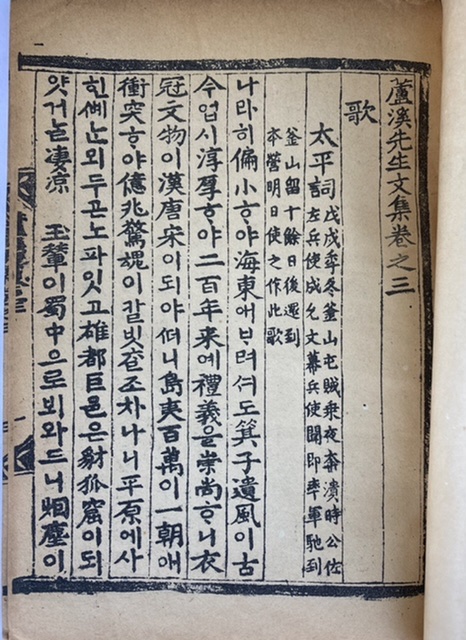 蘆溪先生文集卷之三
歌
太平詞
戊戌季冬釜山屯賊乘夜奔潰時公佐
左兵使成允文幕兵使聞即率軍馳到
釜山留十餘日後還到
本營明日使之作此歌
나라히偏小ᄒᆞ야海東애ᄇᆞ려셔도箕子遺風이古
今업시淳厚ᄒᆞ야二百年来예禮義을崇尙ᄒᆞ니衣
冠文物이漢唐宋이되야ᄯᅥ니島夷百萬이一朝애
衝突ᄒᆞ야億兆驚魂이칼빗ᄎᆞᆯ조차나니平原에사
힌ᄲᅧᄂᆞᆫ뫼두곤노파잇고雄都巨邑은豺狐窟이되
얏거ᄂᆞᆯ凄凉 玉輦이蜀中으로뵈와드니烟塵이